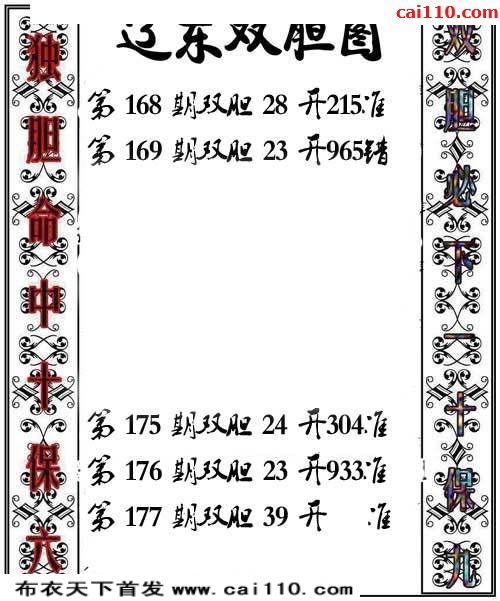 cai110.com
辽东双胆图
独胆命中十保六
第 168 期双胆 28 开215准
第 169 期双胆 23 开965错
第 175 期双胆 24 开304准
第 176 期双胆 23 开933准
第 177 期双胆 39 开 准
双胆必下一十保九
布衣天下首发 www.cai110.com